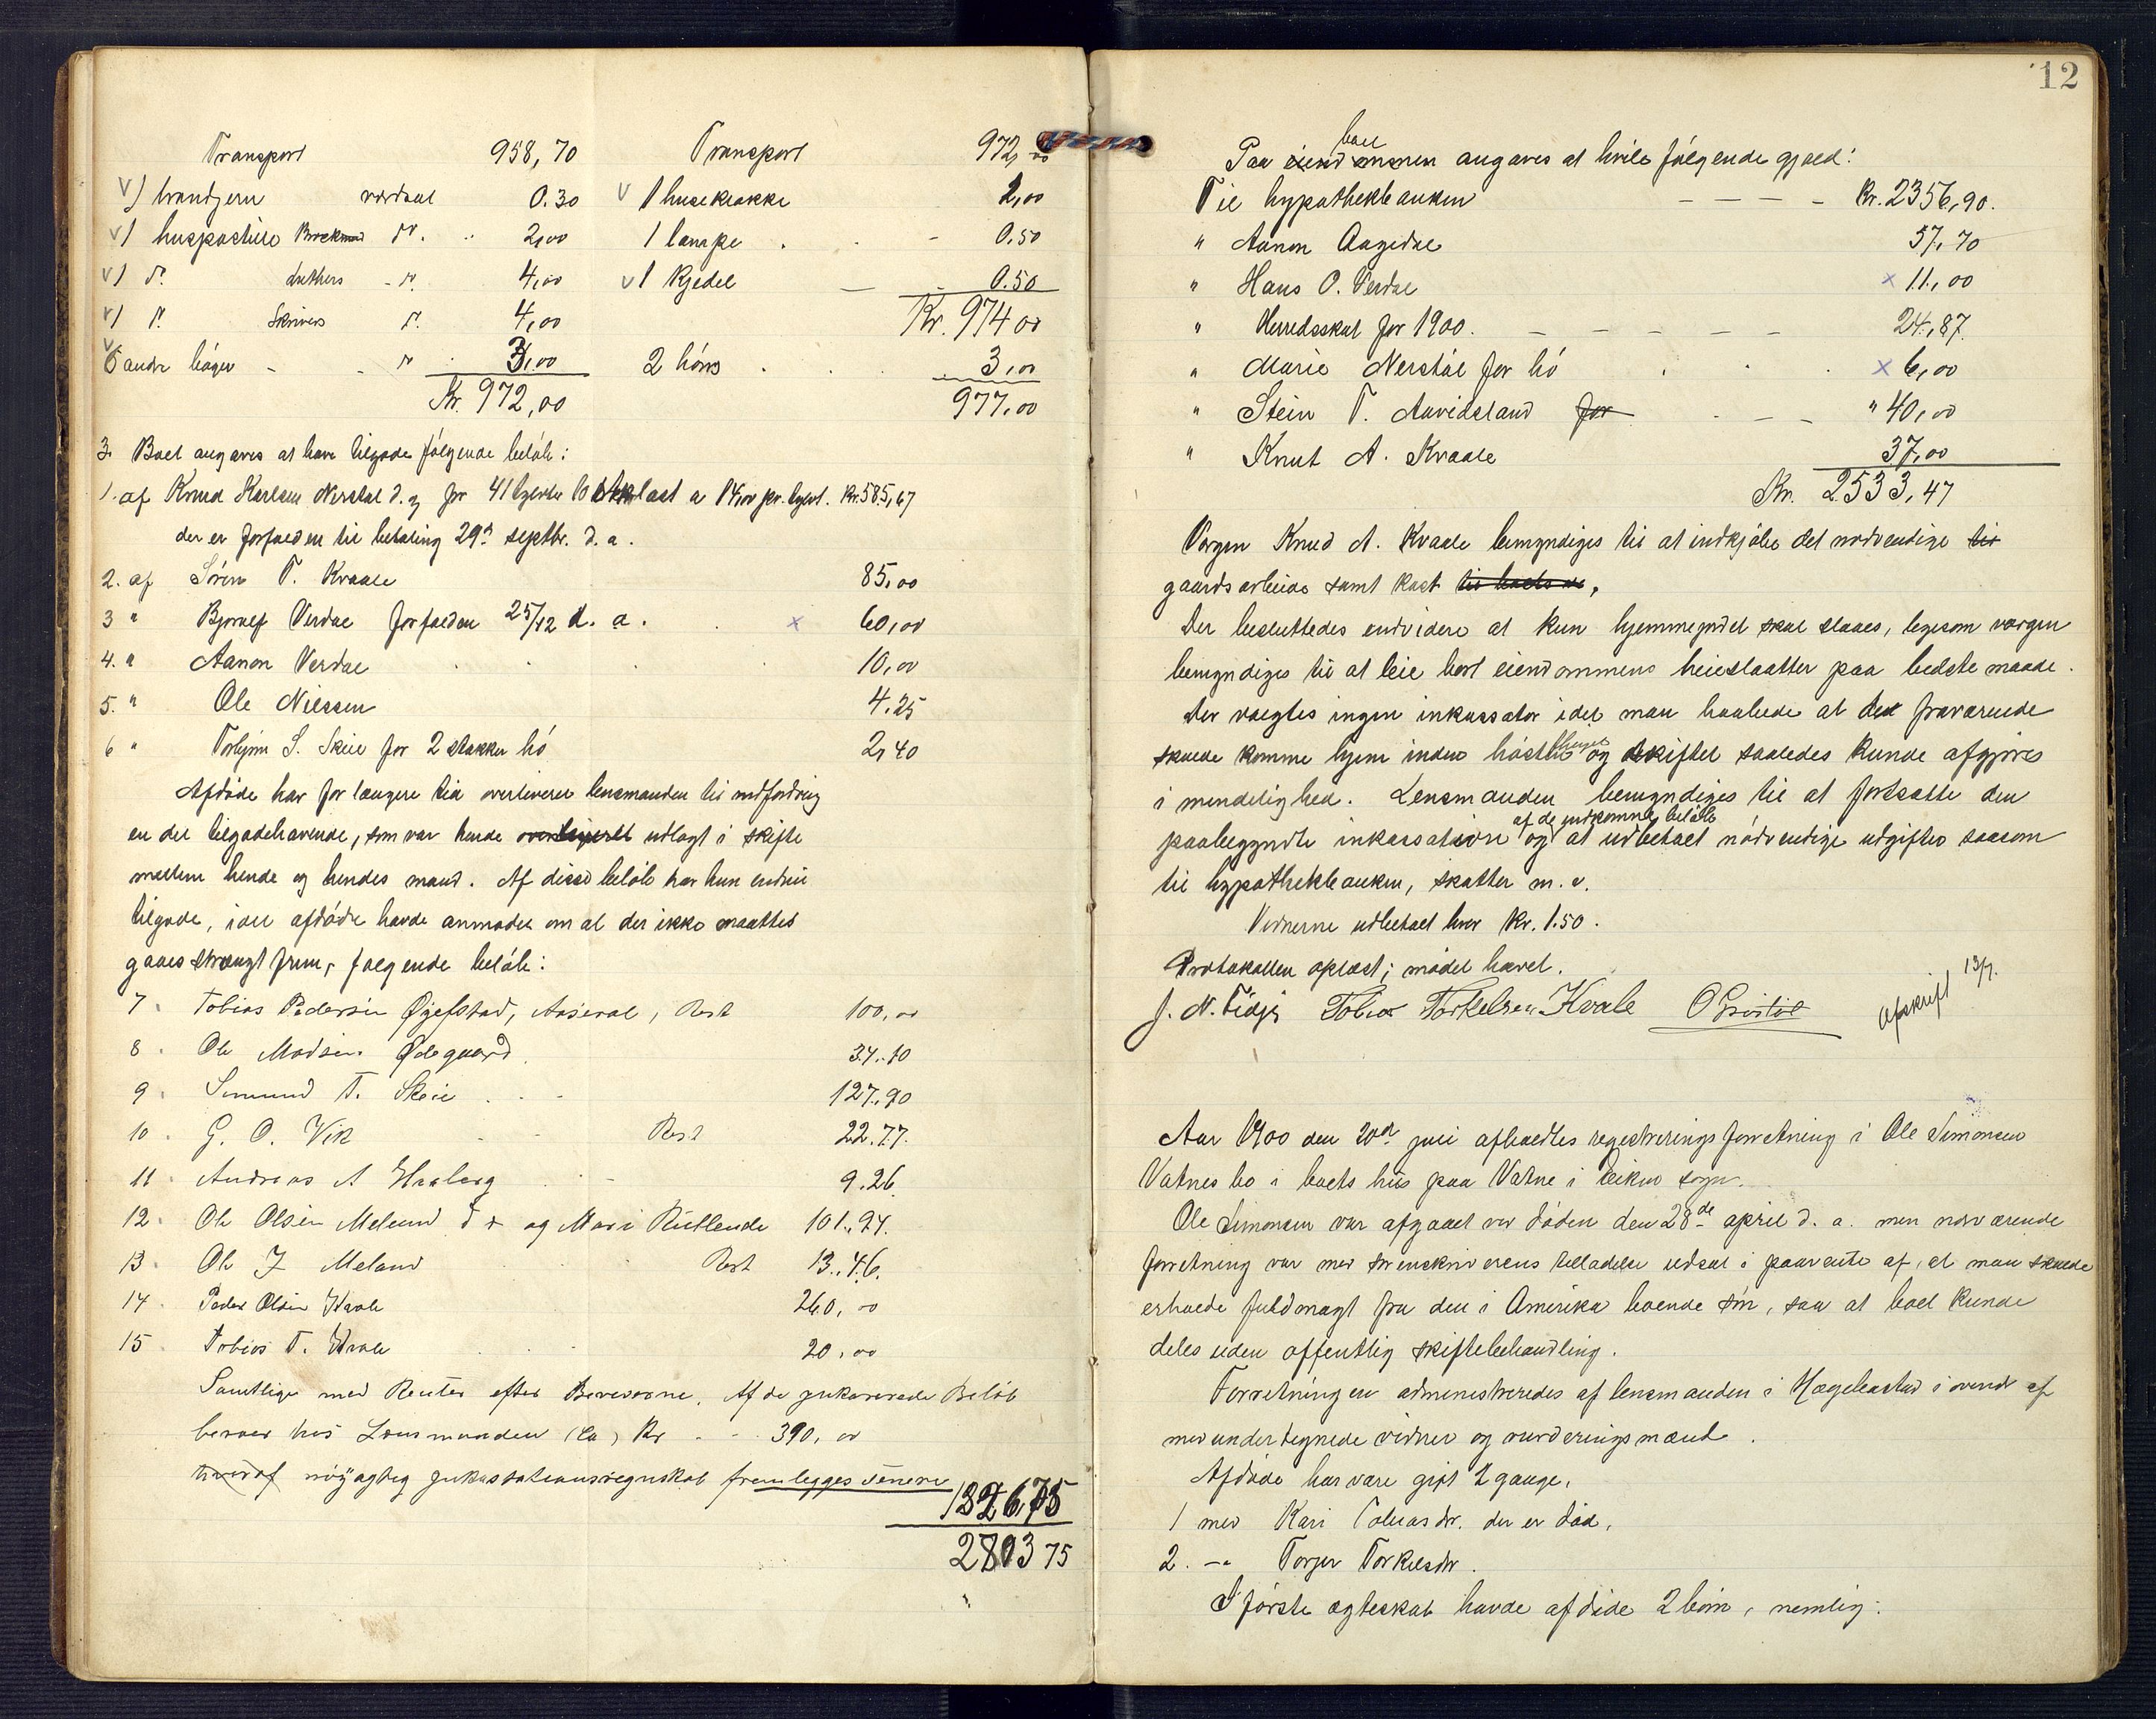 Transport 958,70
1 brandjern værdsat 0.30
1 huspostille Brockmand do. 2,00
1 do. Luthers - do. 4,00
1 do. Skrivers do. 4,00
6 andre bøger - - do 3,00
Kr. 972,00
Transport 972,00
1 huseklokke 1,00
1 lampe 0,50
1 kjedel 0.50
Kr. 974 00
2 høns 3,00
977,00
3. Boet angaves at have tilgode følgende beløb:
1. af Knud Karlsen Nerstøl d. y. for 41 tylvter last a 14,00 pr. tylvt. Kr. 585,67
der er forfalden til betaling 29de septbr. d. a.
2. af Søren T. Kvaale 85,00
3 " Bjornulf Verdal forfalden 25/12 d. a. x 60,00
4. " Aanon Verdal 10,00
5. " Ole Nilssen 4.25
6 " Torbjørn S. Skeie for 2 stakker hø 2,40
Afdøde har for længere tid overleveret lensmanden til indfordring
en del tilgodehavende, som var hende overleveret udlagt i skifte
mellem hende og hendes mand. Af disse beløb har hun endnu
tilgode, idet afdøde havde anmodet om at der ikke maattes
gaaes strængt frem, følgende beløb:
7. Tobias Pedersen Øgefstad, Aaseral, Rest 100,00
8. Ole Madsen Ødegaard 34.10
9. Simund T. Skeie 127.90
10. G. O. Vik Rest 22.77.
11. Andreas A Haaberg 9.26.
12. Ole Olsen Melund d æ og Mari Rutlende 101.94.
13. Ole J Meland Rest 13.46.
14. Peder Olsen Kvale 260,00
15. Tobias T. Kvale 20,00
Samtlige med Renter efter Beviserne. Af de inkasserede Beløb
beroer hos Lensmanden (ca) Kr - - 390,00
hvoraf nøyagtig inkassationsregnskab fremlegges senere
1826,75
2803 75
12
boet
Paa eiendommen angaves at hvile følgende gjæld:
Til hypothekbanken - - - - Kr. 2356,90.
" Aanon Aagedal 57,70
" Hans O. Verdal x 11,00
" Herredsskat for 1900. - - - - - 24,87.
" Marie Nerstøl for hø x 6,00
" Stein T. Auvidsland for " 40,00
" Knut A. Kvaale 37,00
Kr. 2533,47
Værgen Knud A. Kvaale bemyndiges til at indkjøbe det nødvendige til
gaardsarbeide samt kost til boets
Der besluttedes endvidere at kun hjemmejordet skal slaaes, ligesom værgen
bemyndiges til at leie bort eiendommens heieslaatter paa bedste maade.
Der valgtes ingen inkassator idet man haabede at de fraværende
skulde komme hjem inden høsten og skiftet saaledes kunde afgjøres
i mindelighed. Lensmanden bemyndiges til at fortsætte den
af de indkomne beløb
paabegyndte inkassation og at udbetale nødvendige udgifter saasom
til hypothekbanken, skatter m. v.
Vidnerne udbetalt hver Kr. 1.50.
Protokollen oplæst; mødet hævet.
J. N. Tidjs Tobias Torkelsen Kvale O Grøstøl
Afskrift 13/7.
Aar 1900 den 20de juli afholdtes registreringsforretning i Ole Simonsen
Vatnes bo i boets hus paa Vatne i Eiken sogn.
Ole Simonsen var afgaaet ved døden den 28de april d. a. men nærværende
forretning var med sorenskriverens tilladelse udsat i paavente af, at man skulde
erholde fuldmagt fra den i Amerika boende søn, saa at boet kunde
deles uden offentlig skiftebehandling.
Forretningen administreredes af lensmanden i Hægebostad i overvær af
medundertegnede vidner og vurderingsmænd.
Afdøde har være gift 2 gange,
1 med Kari Tobiasdtr. der er død,
2. -"- Torjer Torkelsdtr.
I første ægteskab havde afdøde 2 børn, nemlig: